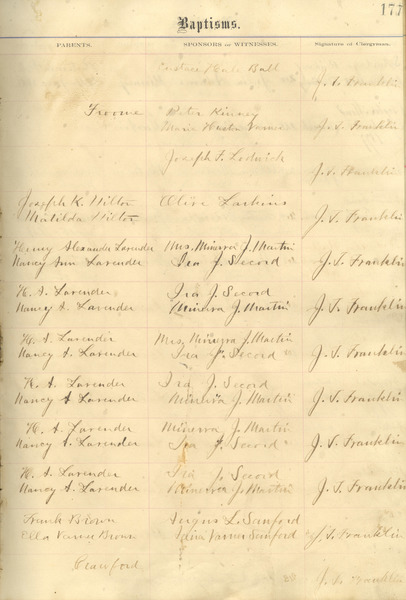 177
Baptisms.
PARENTS. SPONSORS or WITNESSES. Signature of Clergyman.
Hale Ball J. S. Franklin
Froome Peter Kinney
Marie Hunter J. S. Franklin
Joseph T. Lodwick
J. S. Franklin
Joseph K. Hilton Olive Larkins
Matilda Hilton J. S. Franklin
Henry Alexander Lavender Mrs. Minerva J. Martin
Nancy Ann Lavender Ira J. Secord J. S. Franklin
H. A. Lavender Ira J. Secord
Nancy A. Lavender Minerva J. Martin J. S. Franklin
H. A. Lavender Mrs. Minerva J. Martin
Nancy A. Lavender Ira J. Secord J. S. Franklin
H. A. Lavender Ira J. Secord
Nancy A. Lavender Minerva J. Martin J. S. Franklin
H. A. Lavender Minerva J. Martin
Nancy A. Lavender Ira J. Secord J. S. Franklin
H. A. Lavender Ira J. Secord
Nancy A. Lavender Minerva J. Martin J. S. Franklin
Frank Brown Fergus L. Sanford
Ella Varner Brown Edna Varner Sanford J. S. Franklin
Crawford
J. S. Franklin